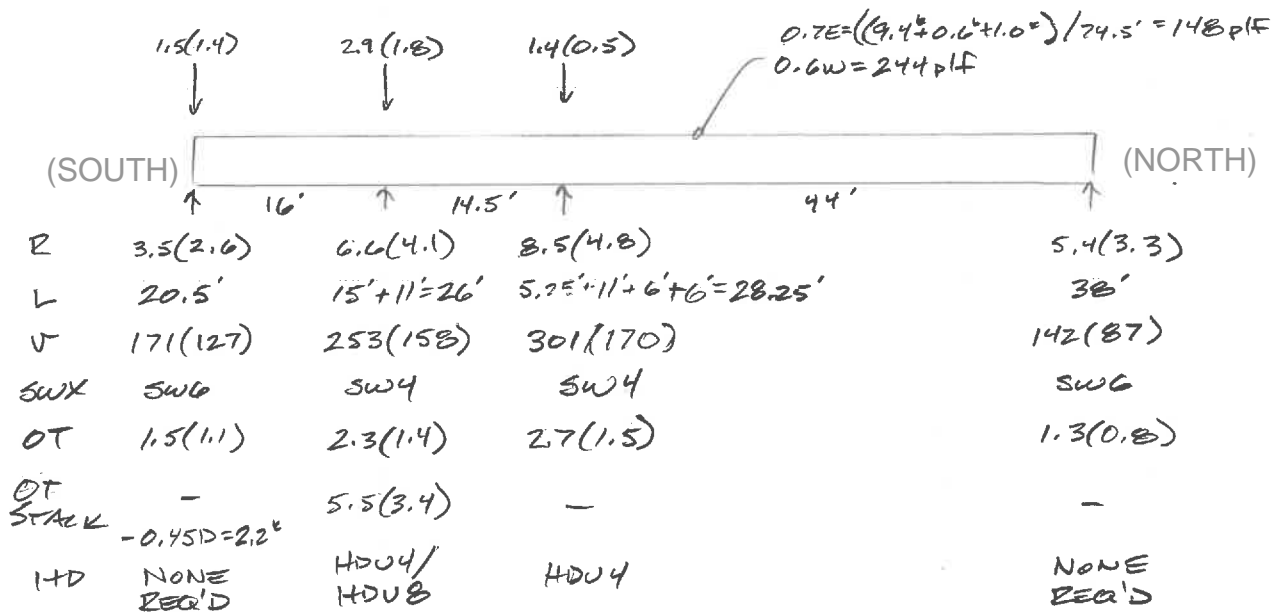 1.5(1.4) 2.9(1.8) 1.4(0.5) 0.7E=((9.4ᵏ+0.6ᵏ+1.0ᵏ)/74.5' = 148 plf
0.6W = 244 plf
(SOUTH) (NORTH)
16' 14.5' 44'
R 3.5(2.6) 6.6(4.1) 8.5(4.8) 5.4(3.3)
L 20.5' 15'+11'=26' 5.25'+11'+6'+6'=28.25' 38'
V 171(127) 253(158) 301(170) 142(87)
SWX SW6 SW4 SW4 SW6
OT 1.5(1.1) 2.3(1.4) 2.7(1.5) 1.3(0.8)
OT
STACK - 5.5(3.4) - -
-0.45D=2.2ᵏ
HD NONE REQ'D HDU4/ HDU8 HDU4 NONE REQ'D